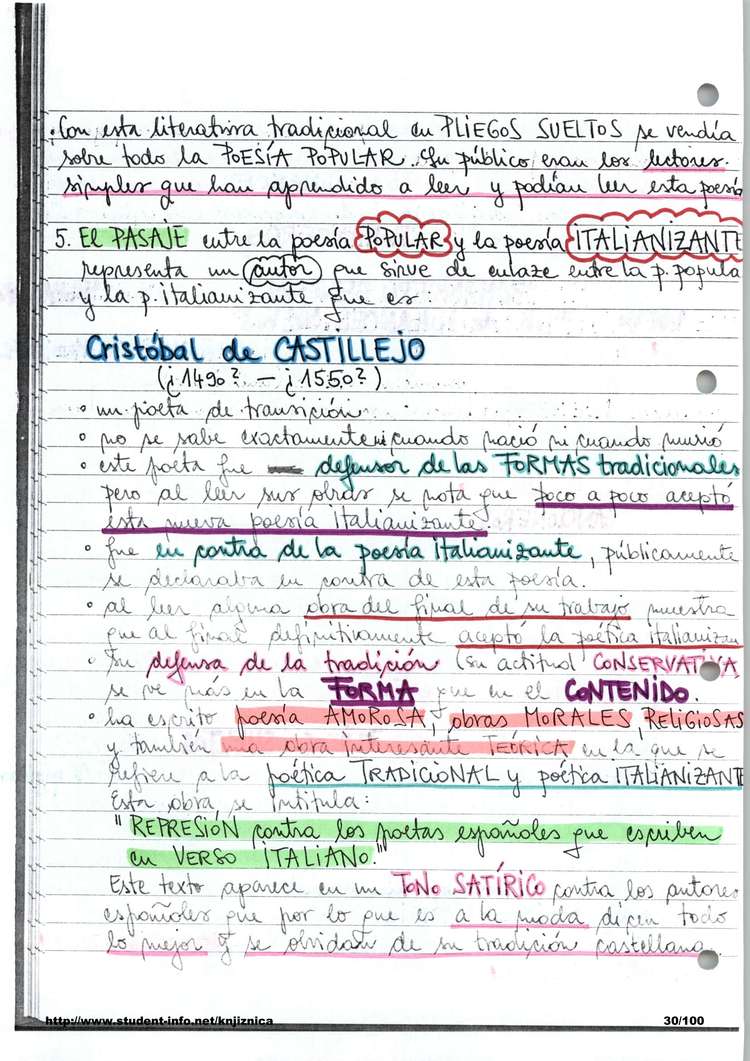 • Con esta literatura tradicional en PLIEGOS SUELTOS se vendía
sobre todo la POESÍA POPULAR. Su público eran los lectores
simples que han aprendido a leer y podían leer esta poesía
5. El PASAJE entre la poesía POPULAR y la poesía ITALIANIZANTE
representa un autor que sirve de enlaze entre la p. popula
y la p. italianizante que es:
Cristóbal de CASTILLEJO
(¿1490? – ¿1550?)
• un poeta de transición
• no se sabe exactamente ni cuando nació ni cuando murió
• este poeta fue defensor de las FORMAS tradicionales
pero al leer sus obras se nota que poco a poco aceptó
esta nueva poesía italianizante
• fue en contra de la poesía italianizante, públicamente
se declaraba en contra de esta poesía.
• al leer alguna obra del final de su trabajo muestra
que al final definitivamente aceptó la poética italianizan
• Su defensa de la tradición (su actitud CONSERVATIVA
se ve más en la FORMA que en el CONTENIDO.
• ha escrito poesía AMOROSA, obras MORALES, RELIGIOSAS
y también una obra interesante TEÓRICA en la que se
refiere a la poética TRADICIONAL y poética ITALIANIZANT
Esta obra se intitula:
"REPRESIÓN contra los poetas españoles que escriben
en VERSO ITALIANO."
Este texto aparece en un TONO SATÍRICO contra los autores
españoles que por lo que es a la moda dicen todo
lo mejor y se olvidan de su tradición castellana.
http://www.student-info.net/knjiznica
30/100